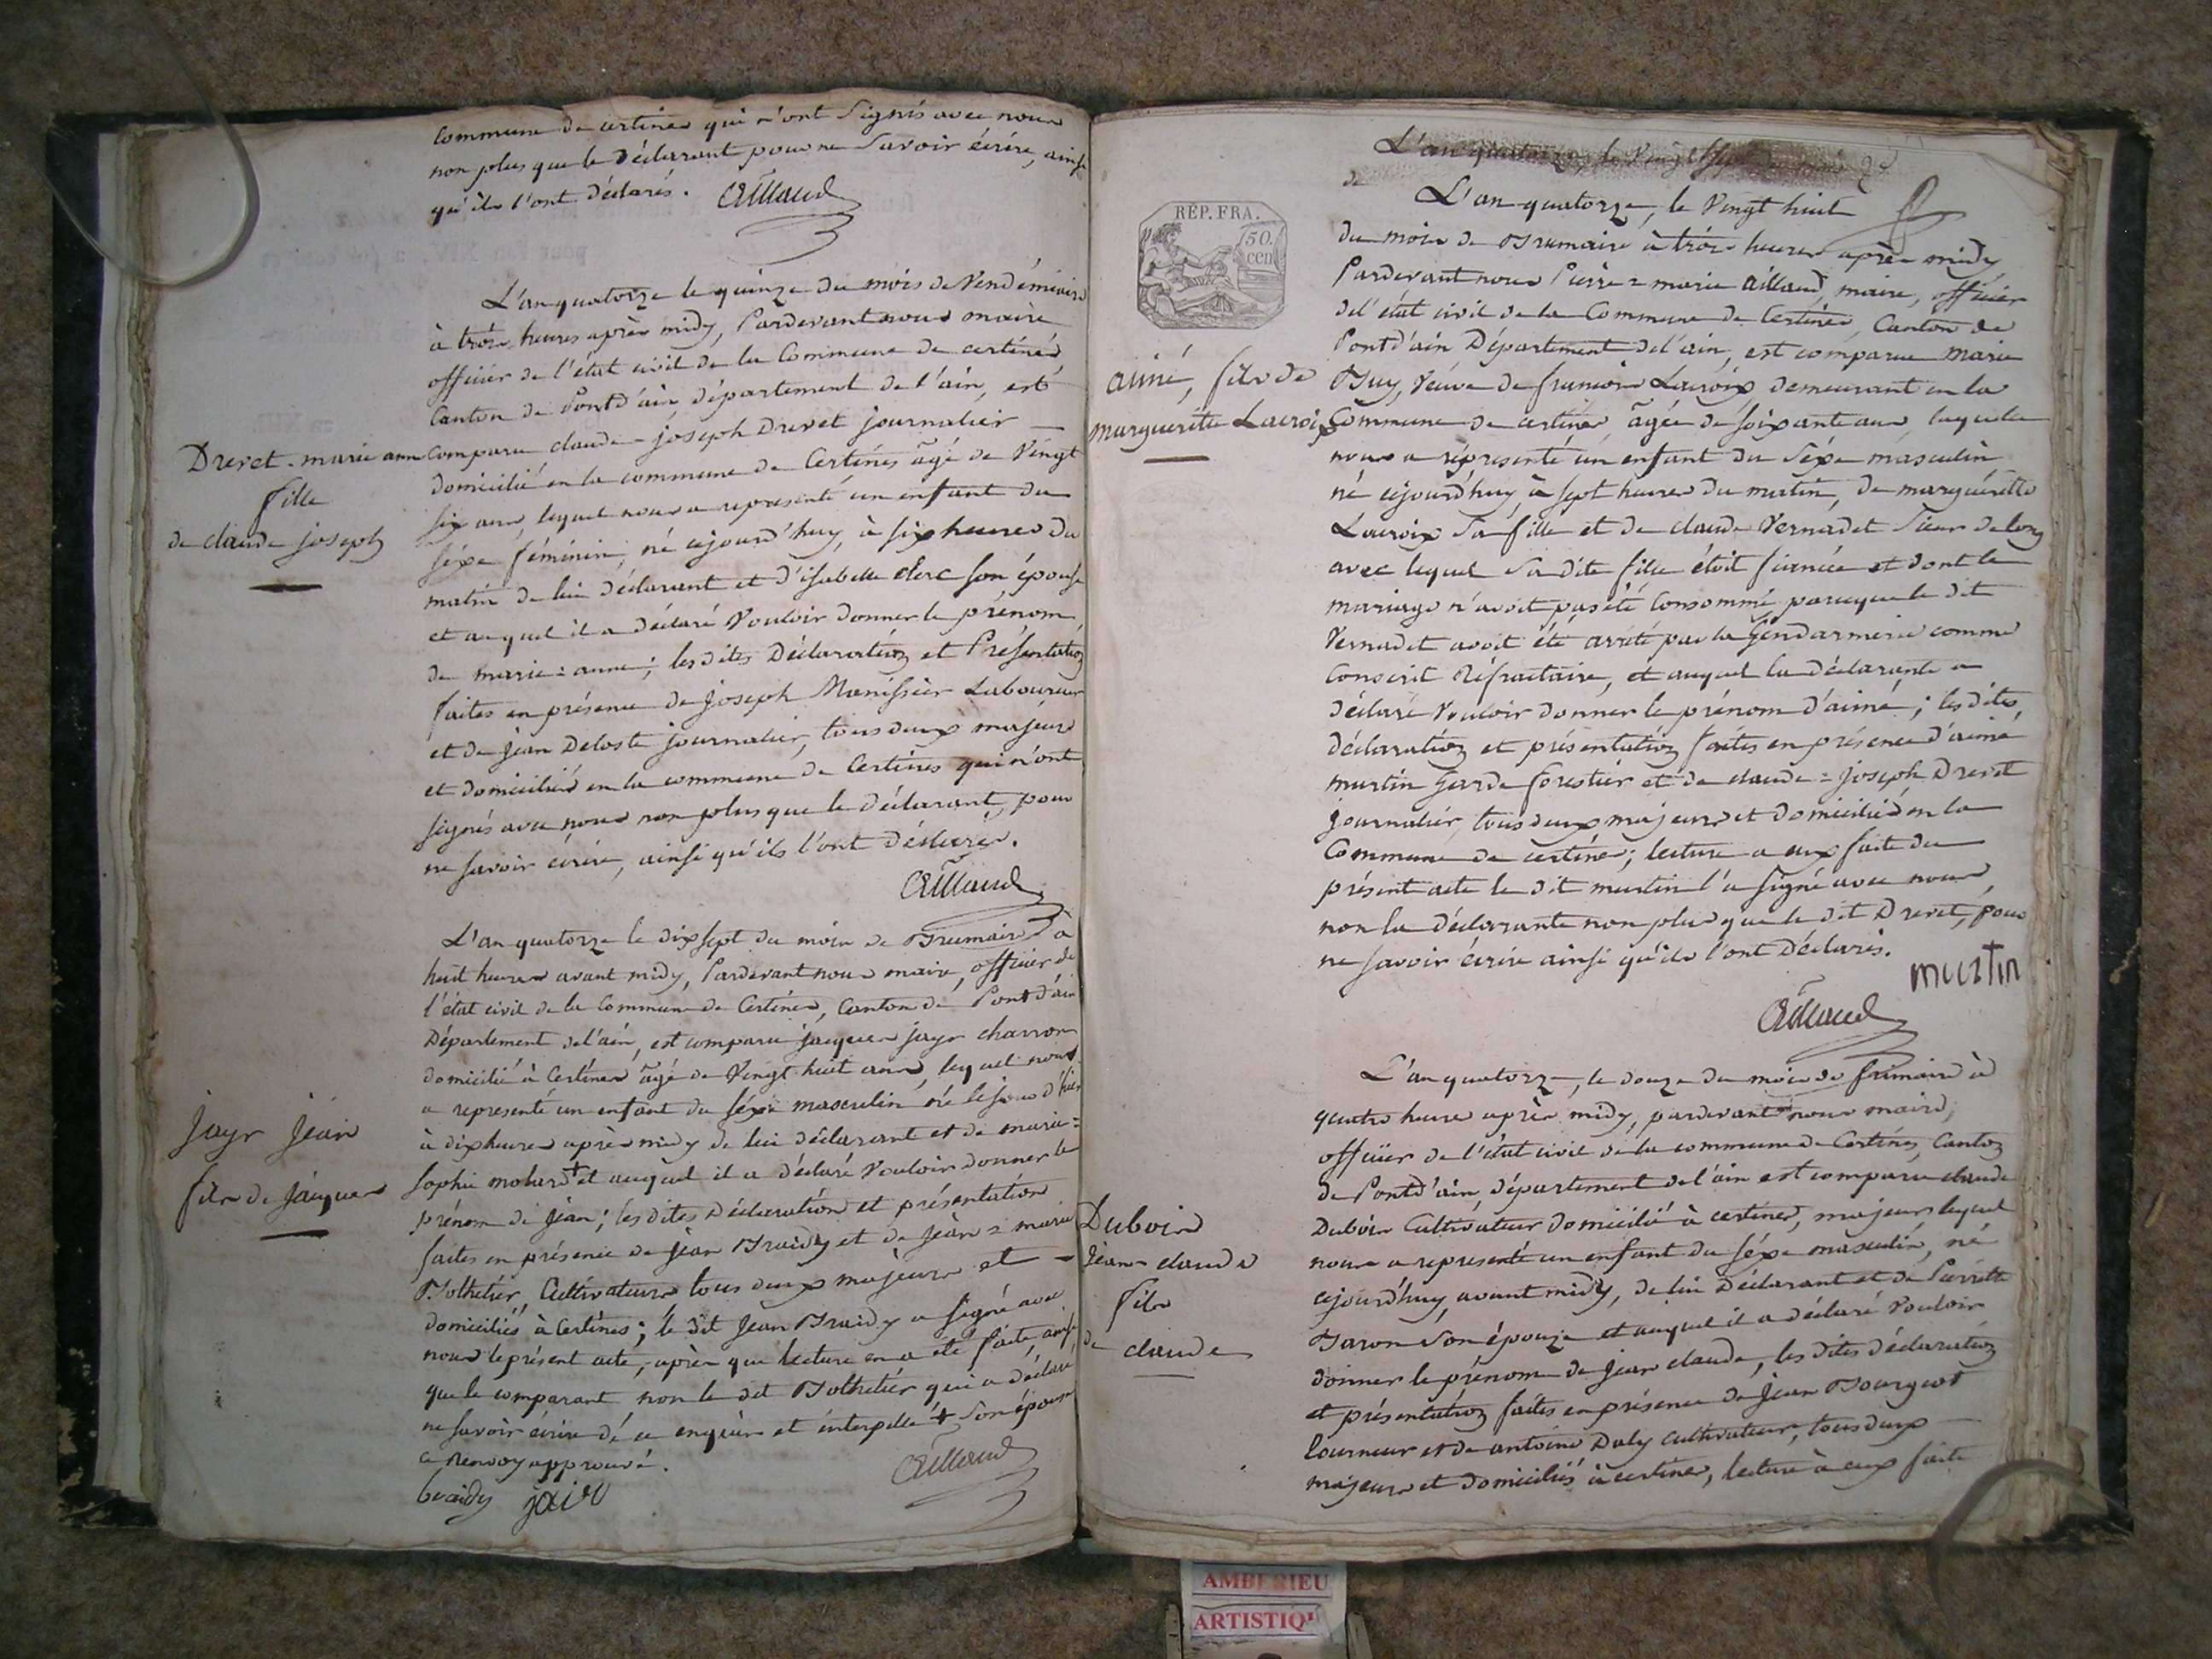 commune de certines qui n'ont signés avec nous
non plus que le déclarant pour ne savoir écrire, ainsi
qu'ils l'ont déclarés. Aillaud
L'an quatorze le quinze du mois de Vendémiaire
à trois heures après midy, Pardevant nous maire
officier de l'état civil de la Commune de certines
Canton de Pontd'ain, département de l'ain, est
Drevet marie ann comparu claude-joseph Drevet journalier
fille
de claude joseph
domicilié en la commune de Certines âgé de Vingt
six ans, lequel nous a representé un enfant du
séxe féminin, né cejourd'huy, à six heures du
matin de lui déclarant et d'isabelle clerc son épouse
et auquel il a déclaré Vouloir donner le prénom
de marie=anne; les dites Déclaration et Présentation
faites en présence de joseph Manissier Laboureur
et de jean Deloste journalier, tous deux majeurs
et domiciliés en la commune de Certines qui n'ont
signés avec nous non plus que le déclarant, pour
ne savoir écrire, ainsi qu'ils l'ont déclarés.
Aillaud
L'an quatorze le dix sept du mois de Brumaire à
huit heures avant midy, Pardevant nous maire, officier de
l'état civil de la Commune de Certines, Canton de Pontd'ain
Département de l'ain, est comparu jacques jayr charron
domicilié à Certines âgé de Vingt huit ans, lequel nous
a representé un enfant du séxe masculin né le jour d'hier
à dix heures après midy de lui déclarant et de marie=
jayr jean
fils de jacques
sophie molard + et auquel il a déclaré Vouloir donner le
prénom de jean; les dites Déclaration et présentation
faites en présence de jean Braidy et de jean=marie
Bolthetier, Cultivateurs tous deux majeurs et
domiciliés à Certines; le dit jean Braidy a signé avec
nous le présent acte, après que lecture en a été faite, ainsi
que le comparant non le dit Bolthetier qui a déclaré
ne savoir écrire de ce enquis et interpellé + son épouse
a renvoy approuvé.
braidy jair Aillaud
L'an quatorze, le Vingt
de
L'an quatorze, le Vingt huit
REP. FRA.
50.
cen
du mois de Brumaire à trois heures après midy
Pardevant nous Pierre=marie Aillaud, maire, officier
de l'état civil de la Commune de Certines, Canton de
Pontd'ain Département de l'ain, est comparue marie
aimé, fils de
marguerite Lacroix
Buy, Veuve de francois Lacroix, demeurant en la
Commune de certines, âgée de soixante ans, laquelle
nous a représenté un enfant du séxe masculin
né cejourd'huy, à sept heures du matin, de marguérite
Lacroix sa fille et de claude Vernadet sieur de long
avec lequel sa dite fille étoit fiancée et dont le
mariage n'avoit pas été Consommé, parceque le dit
Vernadet avoit été arrêté par la Gendarmerie comme
Conscrit Réfractaire, et auquel la déclarante a
déclaré Vouloir donner le prénom d'aimé; les dites
déclaration et présentation faites en présence d'aimé
martin garde forestier et de claude=joseph Drevet
journalier, tous deux majeurs et domiciliés en la
Commune de certines; lecture a eux faite du
présent acte le dit martin l'a signé avec nous,
non la déclarante non plus que le dit Drevet, pour
ne savoir écrire ainsi qu'ils l'ont déclarés.
martin
Aillaud
L'an quatorze, le douze du mois de frimaire à
quatre heures après midy, pardevant nous maire,
officier de l'état civil de la commune de Certines, Canton
de Pontd'ain, département de l'ain est comparu claude
Dubois
jean claude
fils
de claude
Dubois Cultivateur domicilié à certines, majeur, lequel
nous a representé un enfant du séxe masculin, né
cejourd'huy, avant midy, de lui Déclarant et de Pierrette
Baron son épouse et auquel il a déclaré Vouloir
donner le prénom de jean claude, les dites déclaration
et présentation faites en présence de jean Bourgeot
tourneur et de antoine Daly Cultivateur, tous deux
majeurs et domiciliés à certines, lecture à eux faite
AMBERIEU
ARTISTIQU